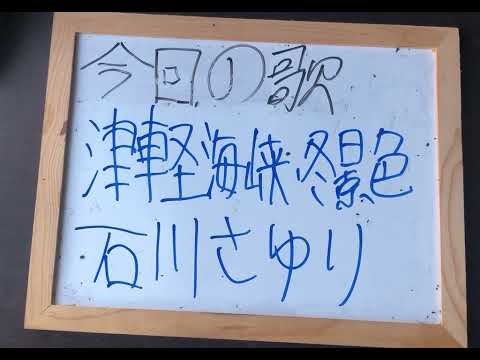 今回の歌
津軽海峡冬景色
石川さゆり